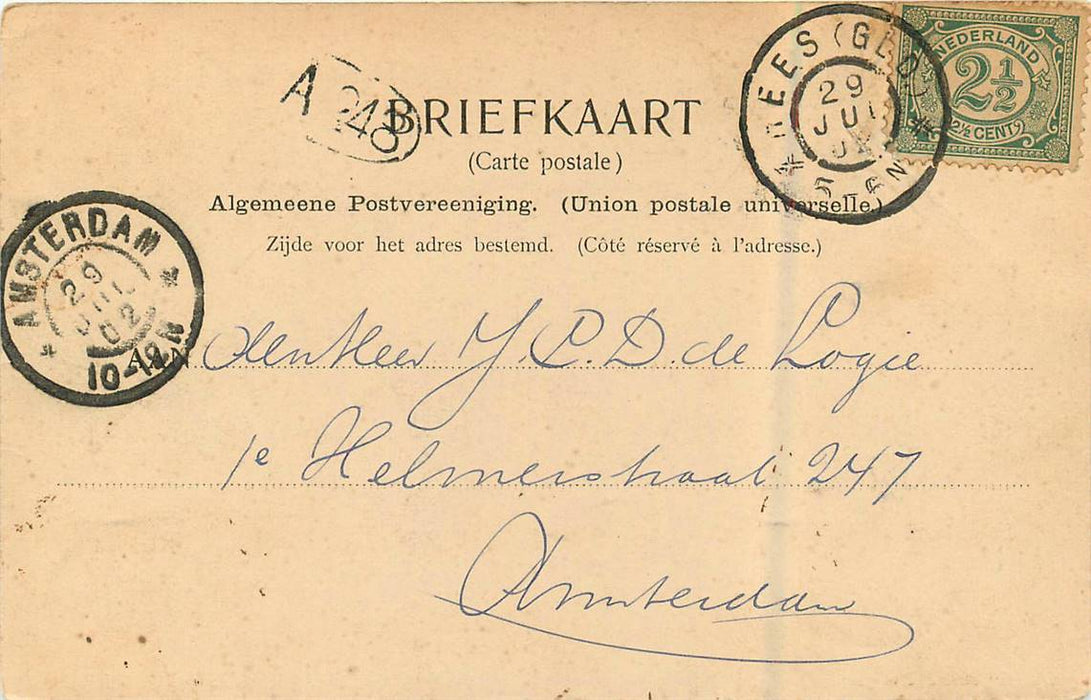 A 248
BRIEFKAART
(Carte postale)
Algemeene Postvereeniging. (Union postale universelle.)
Zijde voor het adres bestemd. (Côté réservé à l'adresse.)
NEDERLAND
2½
2½ CENT
EES (GLD)
29
JUL
02
AMSTERDAM
29
JUL
02
10-12N
Aan
den Heer J. P. D. de Logie
1e Helmerstraat 247
Amsterdam